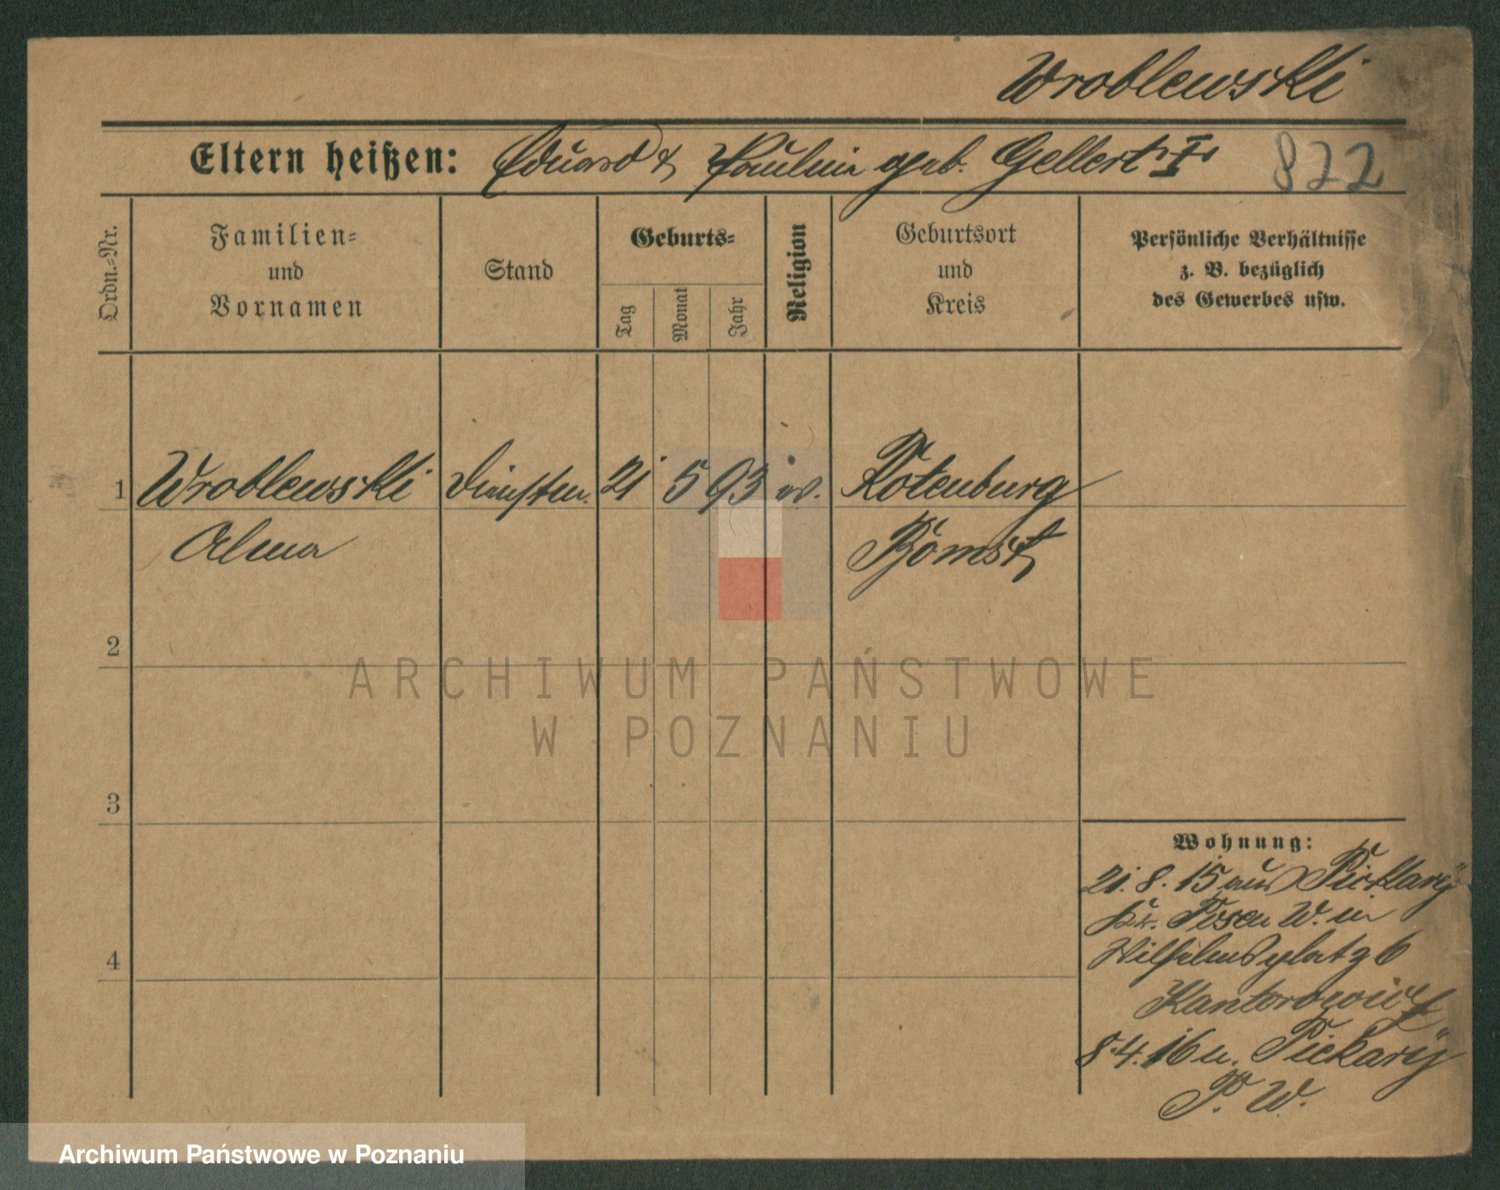 Wroblewski
Eltern heißen: Eduard & Paulina geb. Gellert I 822
Ordn.-Nr.
Familien-
und
Vornamen
Stand
Geburts-
Tag
Monat
Jahr
Religion
Geburtsort
und
Kreis
Persönliche Verhältnisse
z. B. bezüglich
des Gewerbes usw.
1 Wroblewski 21 5 93 ev. Rotenburg
Alma Bomst
2
3
4
ARCHIWUM PAŃSTWOWE
W POZNANIU
Wohnung:
21. 8. 15 aus
Kr. Posen W. in
Wilhelmsplatz 6
Kantorowicz
8.4.16 n.
P. W.
Archiwum Państwowe w Poznaniu